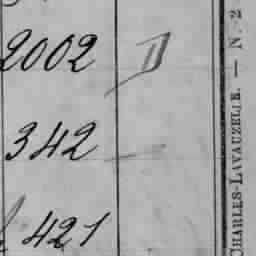 2002 D
342 —
421
CHARLES-LAVAUZELLE. — N. 21